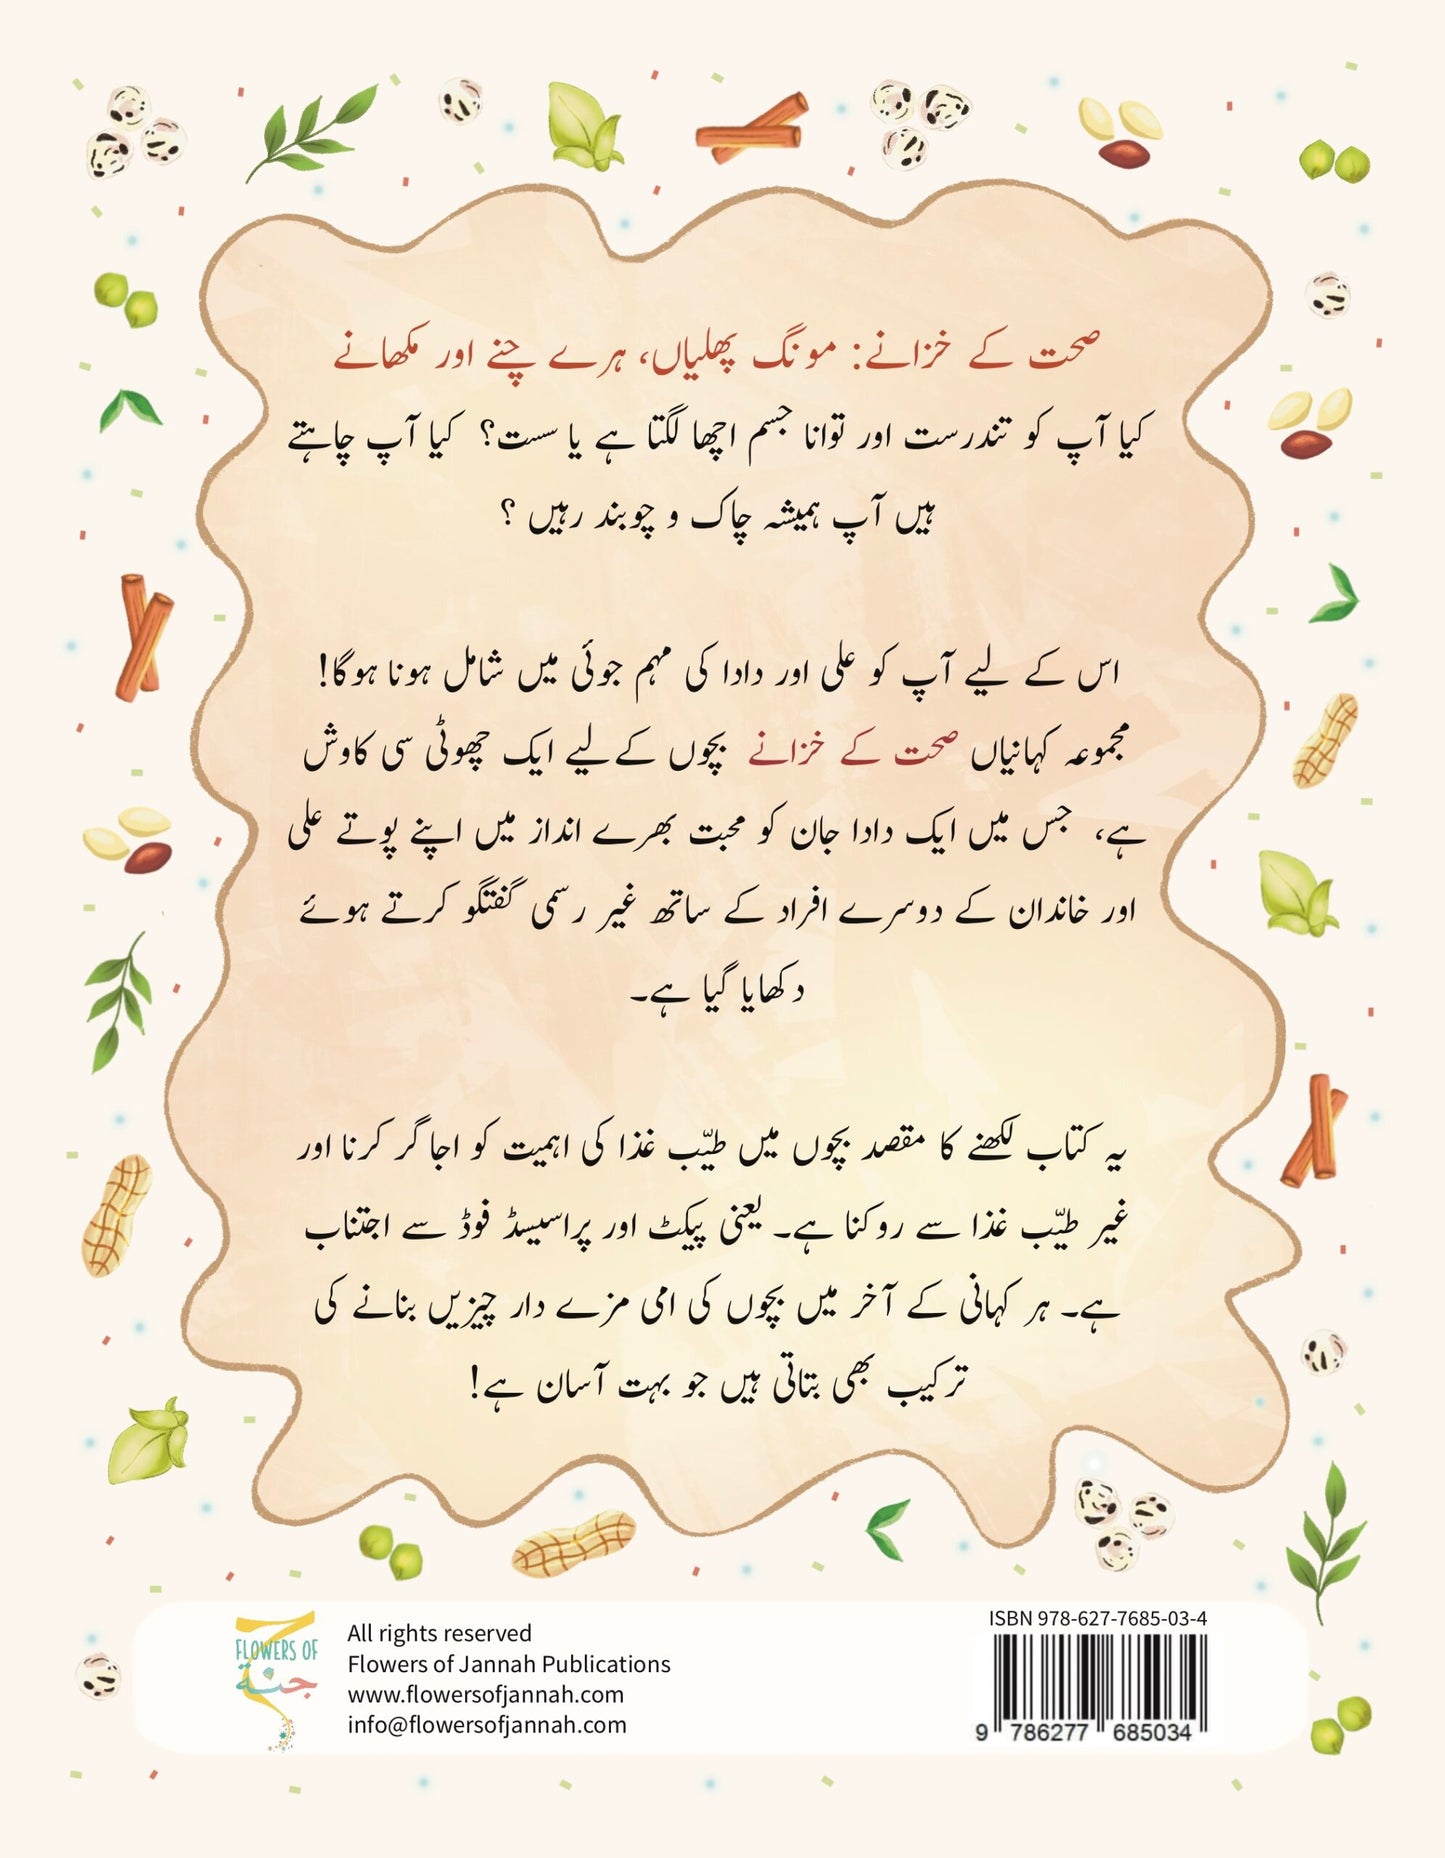 صحت کے خزانے: مونگ پھلیاں، ہرے چنے اور مکھانے
کیا آپ کو تندرست اور توانا جسم اچھا لگتا ہے یا سست؟ کیا آپ چاہتے
ہیں آپ ہمیشہ چاک و چوبند رہیں ؟
اس کے لیے آپ کو علی اور دادا کی مہم جوئی میں شامل ہونا ہوگا!
مجموعہ کہانیاں صحت کے خزانے بچوں کے لیے ایک چھوٹی سی کاوش
ہے، جس میں ایک دادا جان کو محبت بھرے انداز میں اپنے پوتے علی
اور خاندان کے دوسرے افراد کے ساتھ غیر رسمی گفتگو کرتے ہوئے
دکھایا گیا ہے۔
یہ کتاب لکھنے کا مقصد بچوں میں طیّب غذا کی اہمیت کو اجاگر کرنا اور
غیر طیّب غذا سے روکنا ہے۔ یعنی پیکٹ اور پراسیسڈ فوڈ سے اجتناب
ہے۔ ہر کہانی کے آخر میں بچوں کی امی مزے دار چیزیں بنانے کی
ترکیب بھی بتاتی ہیں جو بہت آسان ہے!
FLOWERS OF
جنة
All rights reserved
Flowers of Jannah Publications
www.flowersofjannah.com
info@flowersofjannah.com
ISBN 978-627-7685-03-4
9 786277 685034